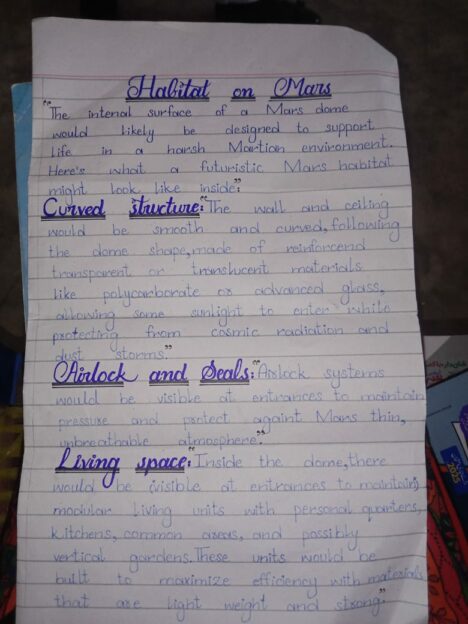 Habitat on Mars
"The intenal surface of a Mars dome
would likely be designed to support
life in a harsh Martian environment.
Here's what a futuristic Mars habitat
might look like inside:"
Curved structure:"The wall and ceiling
would be smooth and curved, following
the dome shape, made of reinforcend
transparent or translucent materials
like polycarborate or advanced glass,
allowing some sunlight to enter while
protecting from cosmic radiation and
dust storms."
Airlock and Seals:"Airlock systems
would be visible at entrances to maintain
pressure and protect againt Mars thin,
unbreathable atmosphere."
Living space:"Inside the dome, there
would be (visible at entrances to maintain)
modular living units with personal quarters,
kitchens, common areas, and possibly
vertical gardens. These units would be
built to maximize efficiency with materials
that are light weight and strong."